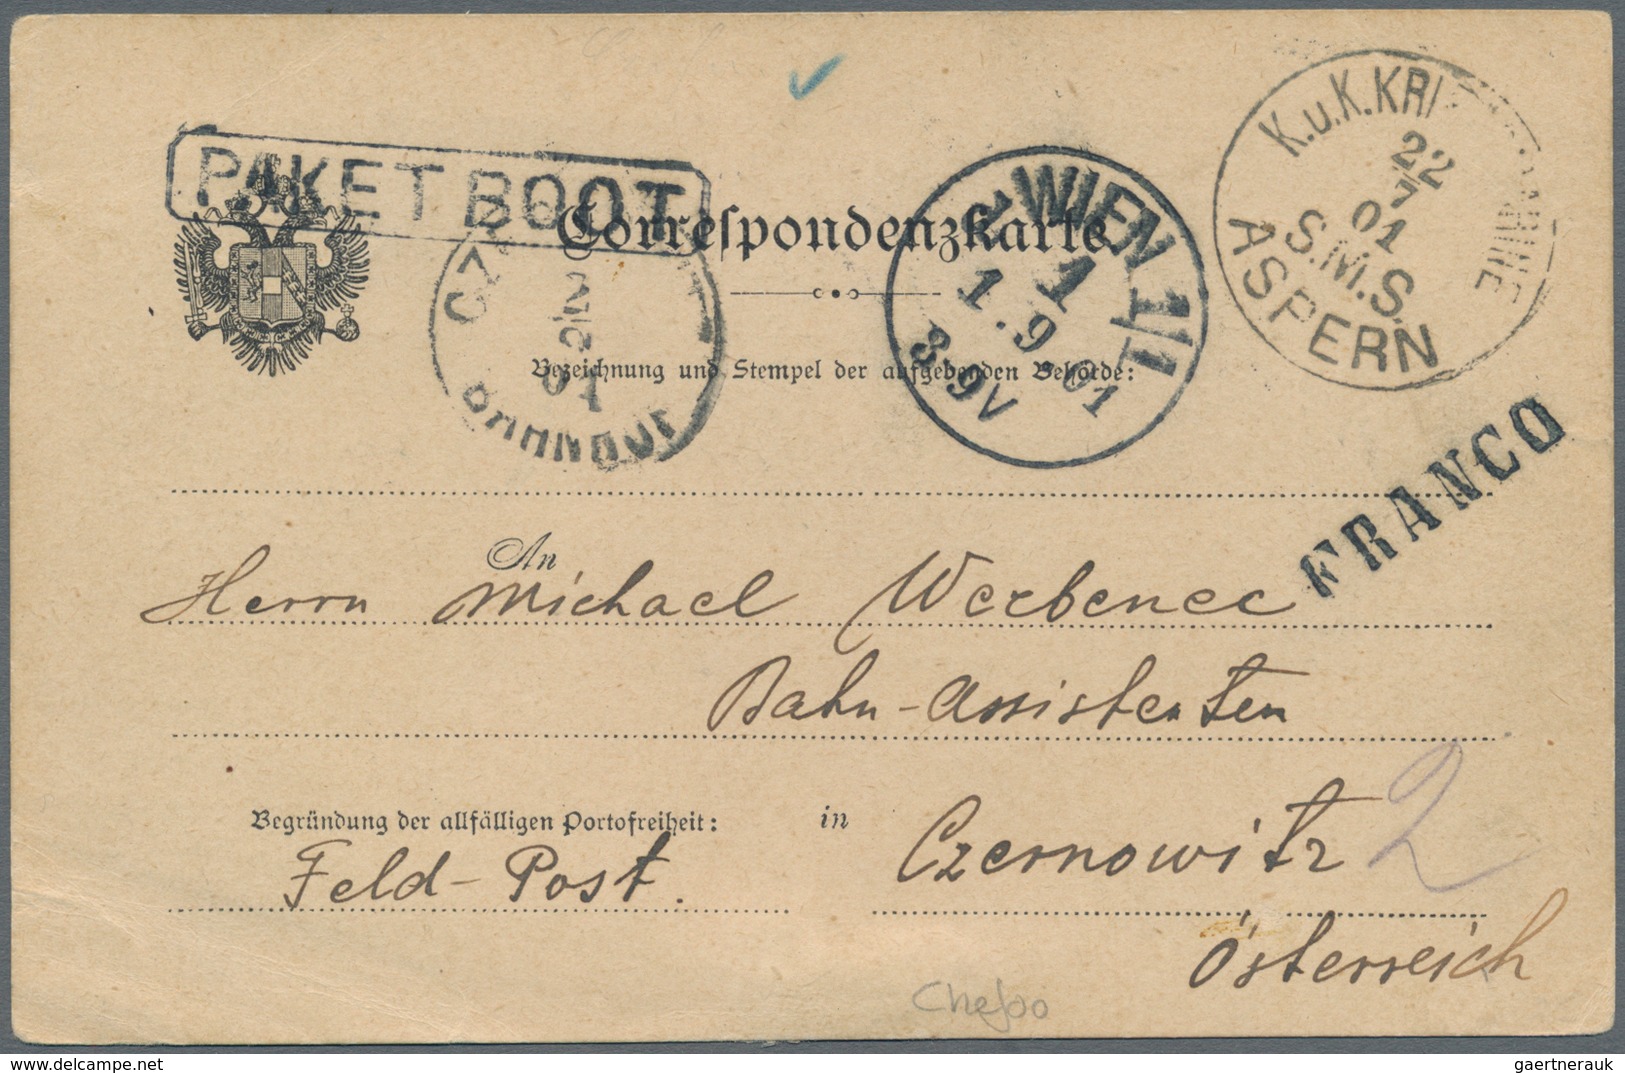 PAKETBOOT
Correspondenzkarte.
WIEN 1/1
1
1.9.01
8-9V
K.u.K.
22
7
01
S.M.S.
ASPERN
01
Bezeichnung und Stempel der aufgebenden Behörde:
FRANCO
An
Herrn Michael Werbenec
Bahn-Assistenten
Begründung der allfälligen Portofreiheit:
in
Czernowitz 2
Feld-Post.
Österreich
Chefoo
delcampe.net
gaertnerauk